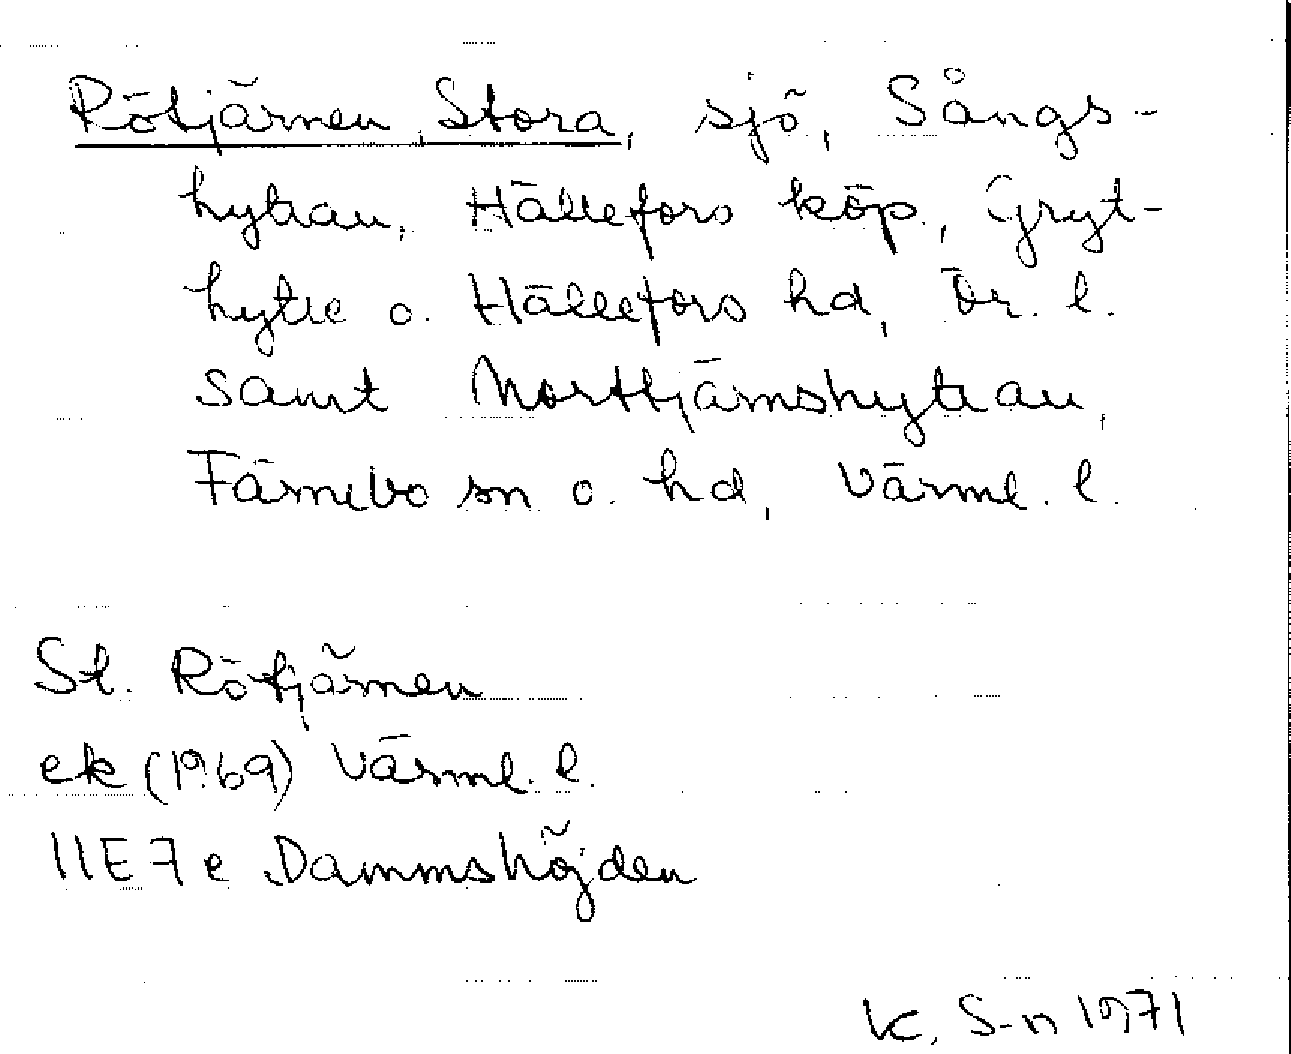 Rötjärnen, Stora, sjö, Sångs-
hyttan, Hällefors köp., Gryt-
hytte o. Hällefors hd, Ör. l.
samt Norttjärnshyttan,
Färnebo sn o. hd, Värml. l.
St. Rötjärnen
ek (1969) Värml. l.
11E7e Dammshöjden
K. S-n 1971